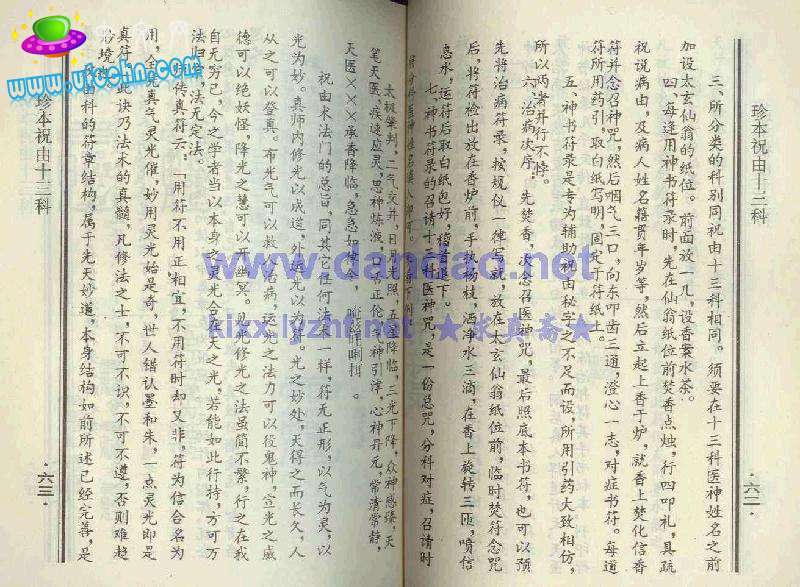 珍本祝由十三科
三、所分类的科别同祝由十三科相同。须要在十三科医神姓名之前
加设太玄仙翁的纸位。前面放一几,设香案水茶。
四、每逢用神书符录时,先在仙翁纸位前焚香点烛,行四叩礼,具疏
祝说病由,及病人姓名籍贯年岁等,然后立起上香于炉,就香上焚化信香
符并念召神咒,然后咽气三口,向东叩齿三通,澄心一志,对症书符。每道
符所用药引,取白纸写明,固定于符纸上。
五、神书符录是专为辅助祝由秘字之不足而设,所用引药大致相仿,
所以两者并行不悖。
六、治病次序:先焚香,次念召医神咒,最后照底本书符,也可以预
先将治病符录,按规仪一律写就,放在太玄仙翁纸位前,临时焚符念咒
后,将符检出放在香炉前,手执杨枝,洒净水三滴,在香上旋转三匝,喷信
息水,运符后取白纸包好,稽首退下。
七、神书符录的召请十三科医神咒,是一份总咒,分科对症,召请时
·六二·
太极肇判,二气交并,日月光照,五星降临,三光下降,众神感臻,天
笔天医,疾速应灵,思神炼液
心神丹元,常清常静,
天医×××承香降临,急急如律令
祝由术法门的总旨,同其它任何法术一样,符无正形,以气为灵,以
光为妙。真师内修光以成道,外运光以为符。光之妙处,天得之而长久,人
从之可以登真。布光气可以救人治病,运光之法力可以役鬼神,宣光之威
德可以绝妖怪,降光之慧可以开幽冥。见光修光之法虽简不繁,行之在我
自无穷已,今之学者当以本身之灵光合在天之光,若能如此行持,方可万
法归一,法无定法。
传真符云:“用符不用正相宜,不用符时却又非,符为信合名为
用,全凭真气灵光催,妙用灵光始是奇,世人错认墨和朱,一点灵光即是
真符。”此诀乃法术的真髓,凡修法之士,不可不识,不可不遵,否则难趋
妙境。
祝由科的符章结构,属于先天妙道,本身结构如前所述已经完善,是
珍本祝由十三科
·六三·
www.dandao.net
kixx.lyzhf.net ★求真斋★
www.uunnt.com